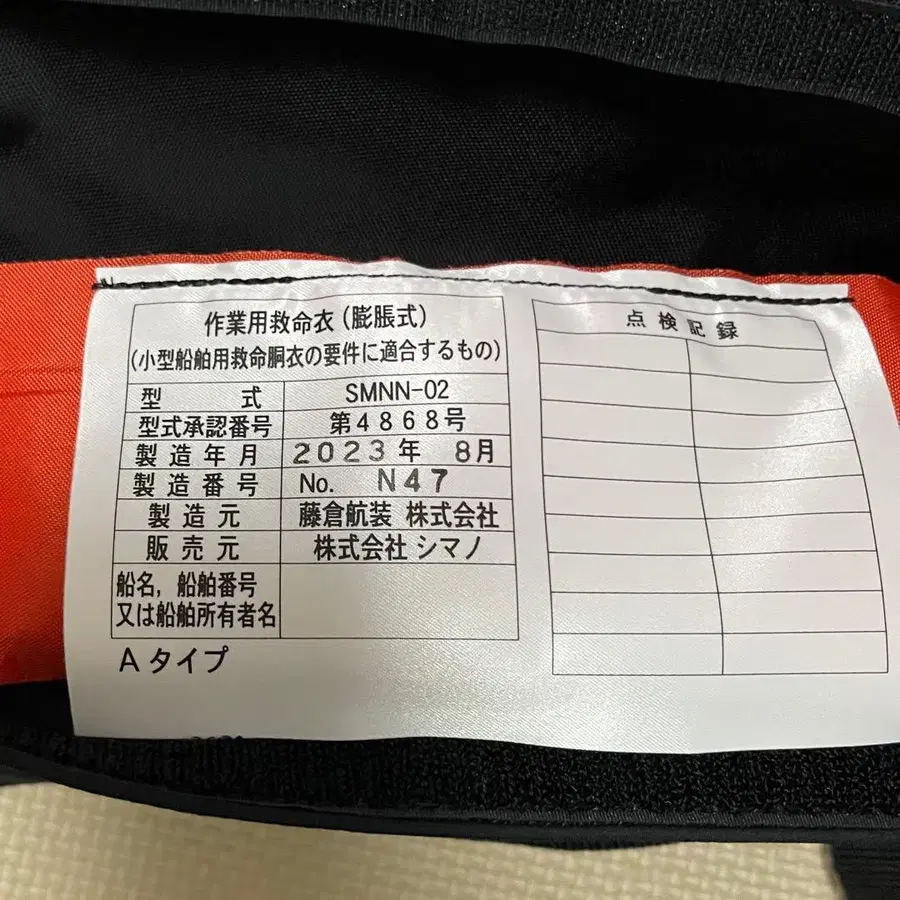 作業用救命衣(膨脹式)
(小型船舶用救命胴衣の要件に適合するもの)
型式 SMNN-02
型式承認番号 第4868号
製造年月 2023年 8月
製造番号 No. N47
製造元 藤倉航装 株式会社
販売元 株式会社 シマノ
船名，船舶番号
又は船舶所有者名
Aタイプ
点検記録